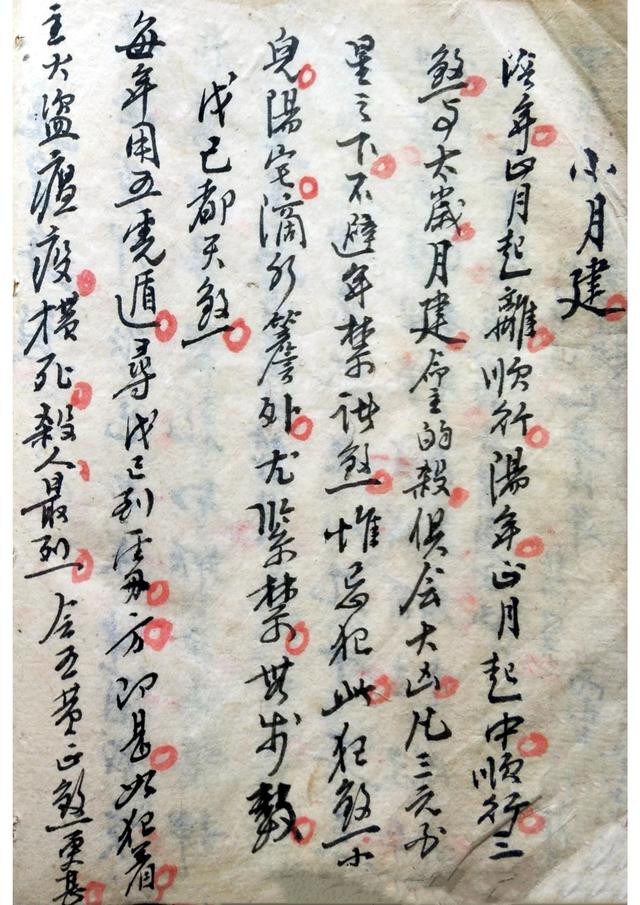 小月建
陰年正月起離順行陽年正月起中順行二
煞与太歲月建命主的殺俱会大凶凡三元
星之下不避年禁諸煞惟忌犯此犯煞小
兒陽宅滴水簷外尤緊禁步數
戊己都天煞
每年用五虎遁尋戊己到方即是如犯着
主大盜瘟疫横死殺人最烈会五黄正煞更甚